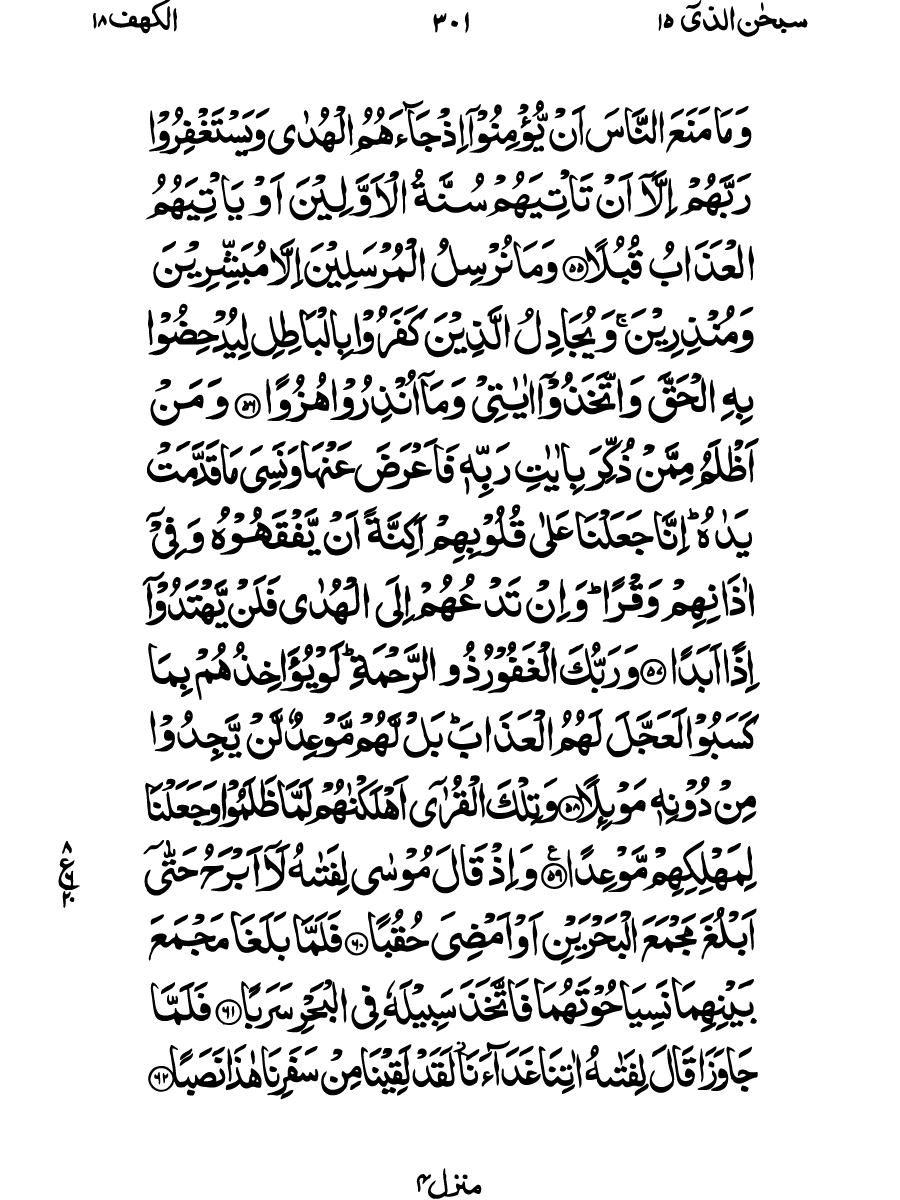 سبحٰن الذیٓ ۱۵
۳۰۱
الکهف ۱۸
وَمَا مَنَعَ النَّاسَ اَنْ یُّؤْمِنُوْۤا اِذْ جَآءَهُمُ الْهُدٰی وَیَسْتَغْفِرُوْا
رَبَّهُمْ اِلَّاۤ اَنْ تَاْتِیَهُمْ سُنَّةُ الْاَوَّلِیْنَ اَوْ یَاْتِیَهُمُ
الْعَذَابُ قُبُلًا ﴿۵۵﴾ وَمَا نُرْسِلُ الْمُرْسَلِیْنَ اِلَّا مُبَشِّرِیْنَ
وَمُنْذِرِیْنَ ۚ وَیُجَادِلُ الَّذِیْنَ كَفَرُوْا بِالْبَاطِلِ لِیُدْحِضُوْا
بِهِ الْحَقَّ وَاتَّخَذُوْۤا اٰیٰتِیْ وَمَاۤ اُنْذِرُوْا هُزُوًا ﴿۵۶﴾ وَمَنْ
اَظْلَمُ مِمَّنْ ذُكِّرَ بِاٰیٰتِ رَبِّهٖ فَاَعْرَضَ عَنْهَا وَنَسِیَ مَا قَدَّمَتْ
یَدٰهُ ؕ اِنَّا جَعَلْنَا عَلٰی قُلُوْبِهِمْ اَكِنَّةً اَنْ یَّفْقَهُوْهُ وَفِیْۤ
اٰذَانِهِمْ وَقْرًا ؕ وَاِنْ تَدْعُهُمْ اِلَی الْهُدٰی فَلَنْ یَّهْتَدُوْۤا
اِذًا اَبَدًا ﴿۵۷﴾ وَرَبُّكَ الْغَفُوْرُ ذُو الرَّحْمَةِ ؕ لَوْ یُؤَاخِذُهُمْ بِمَا
كَسَبُوْا لَعَجَّلَ لَهُمُ الْعَذَابَ ؕ بَلْ لَّهُمْ مَّوْعِدٌ لَّنْ یَّجِدُوْا
مِنْ دُوْنِهٖ مَوْىِٕلًا ﴿۵۸﴾ وَتِلْكَ الْقُرٰۤی اَهْلَكْنٰهُمْ لَمَّا ظَلَمُوْا وَجَعَلْنَا
لِمَهْلِكِهِمْ مَّوْعِدًا ﴿۵۹﴾ۧ وَاِذْ قَالَ مُوْسٰی لِفَتٰىهُ لَاۤ اَبْرَحُ حَتّٰۤی
۸
ع
۶
۲۰
اَبْلُغَ مَجْمَعَ الْبَحْرَیْنِ اَوْ اَمْضِیَ حُقُبًا ﴿۶۰﴾ فَلَمَّا بَلَغَا مَجْمَعَ
بَیْنِهِمَا نَسِیَا حُوْتَهُمَا فَاتَّخَذَ سَبِیْلَهٗ فِی الْبَحْرِ سَرَبًا ﴿۶۱﴾ فَلَمَّا
جَاوَزَا قَالَ لِفَتٰىهُ اٰتِنَا غَدَآءَنَا ؗ لَقَدْ لَقِیْنَا مِنْ سَفَرِنَا هٰذَا نَصَبًا ﴿۶۲﴾
منزل ۴